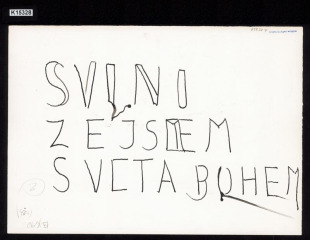 K15328
SVINI
ZEJSEM
SVETA BOHEM
2